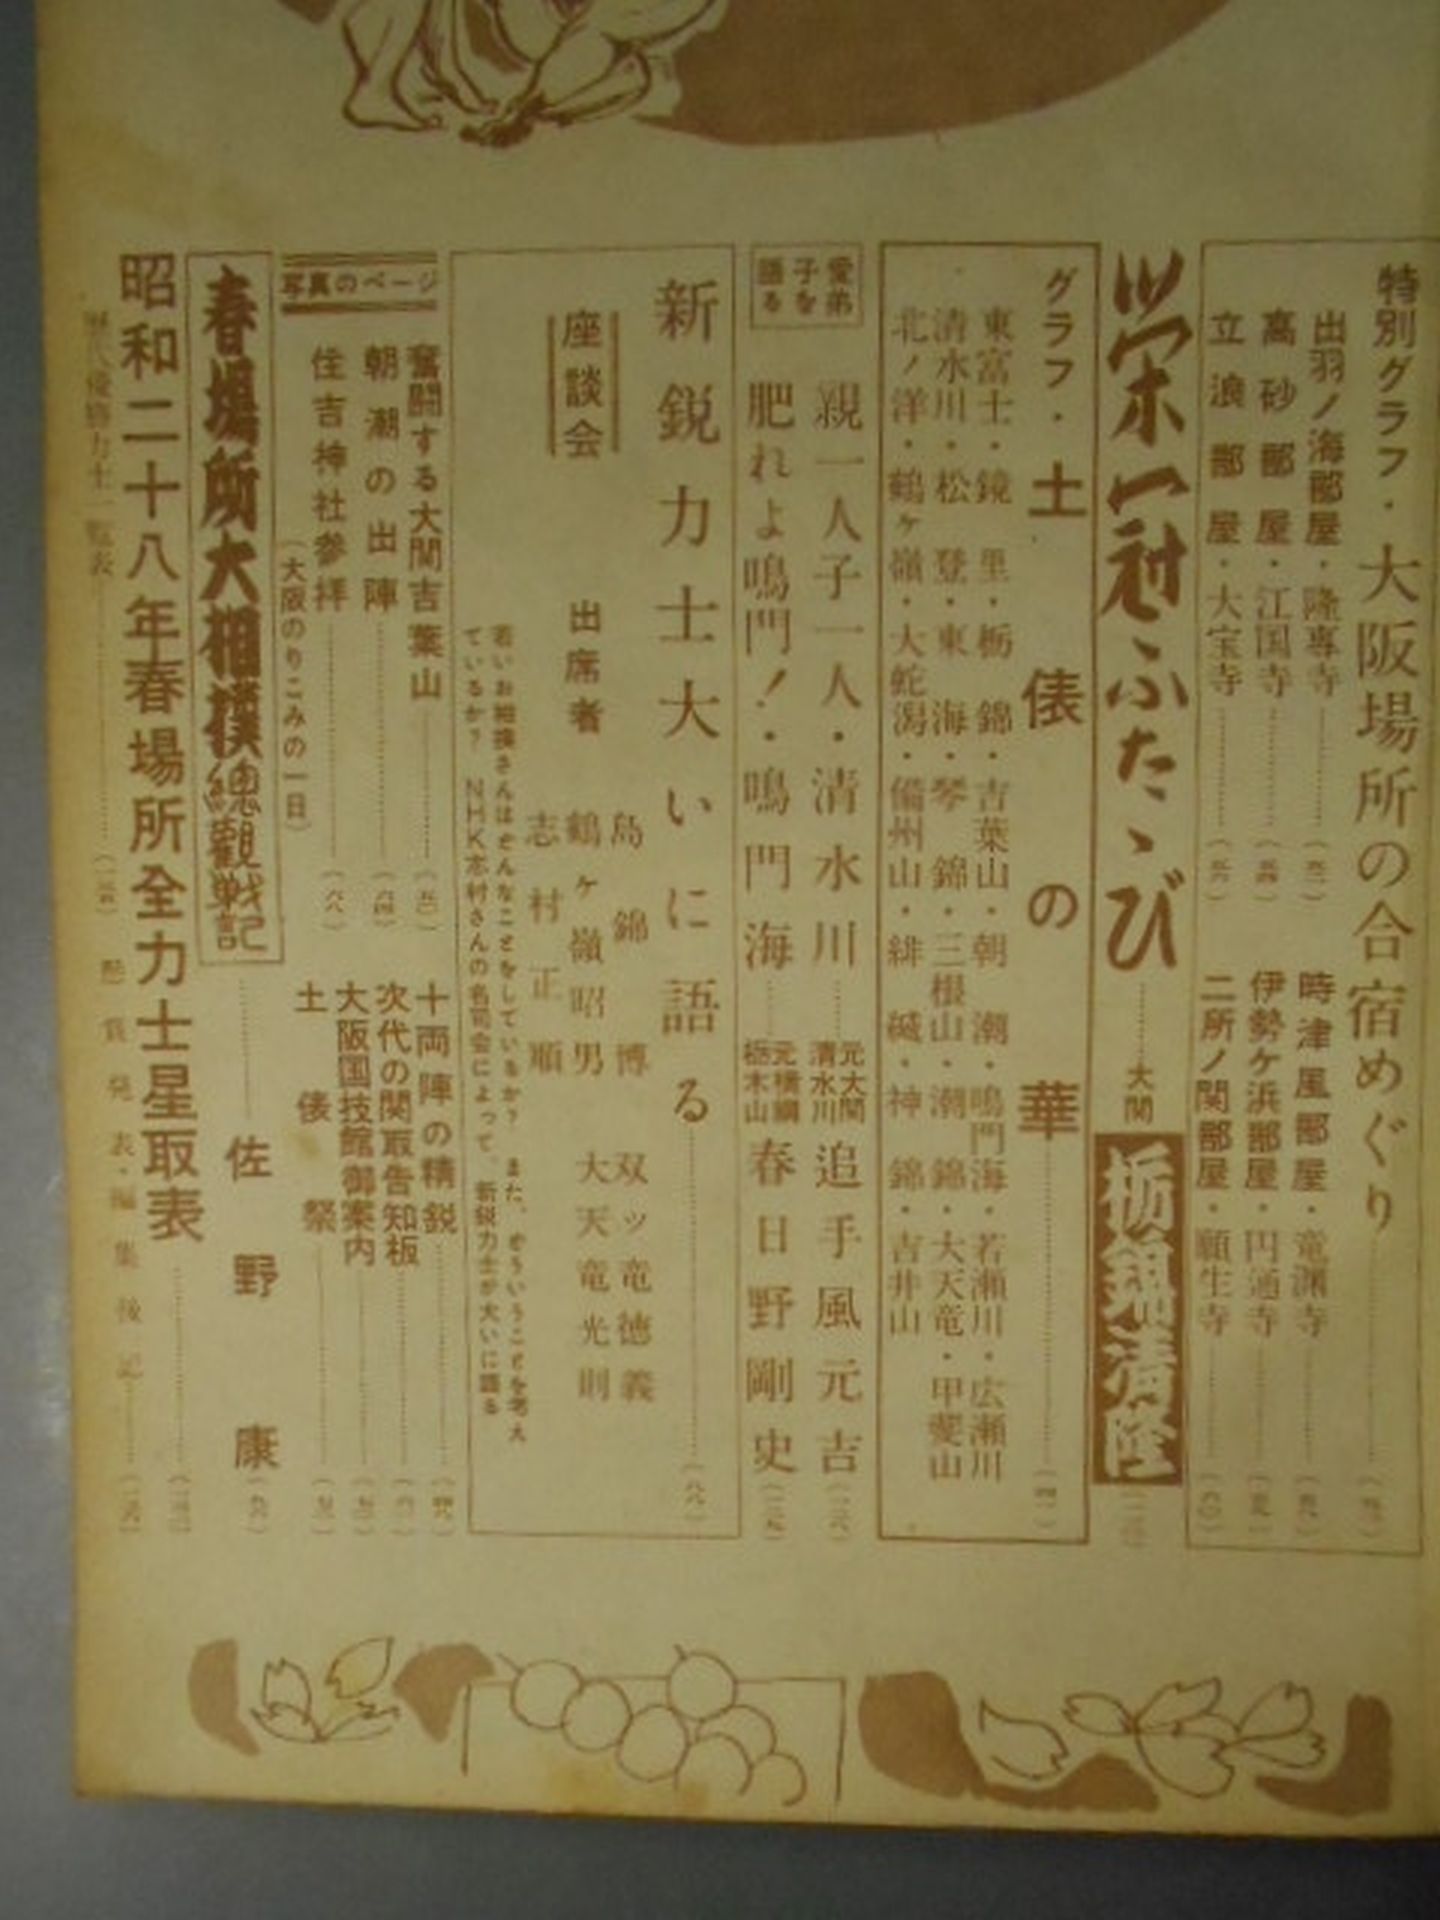 特別グラフ・大阪場所の合宿めぐり
出羽ノ海部屋・隆専寺
高砂部屋・江国寺
立浪部屋・大宝寺
時津風部屋・竜渕寺
伊勢ケ浜部屋・円通寺
二所ノ関部屋・願生寺
栄冠ふたゝび
大関
栃錦清隆
グラフ・土俵の華
東富士・鏡里・栃錦・吉葉山・朝潮・鳴門海・若瀬川・広瀬川
清水川・松登・東海・琴錦・三根山・潮錦・大天竜・甲斐山
北ノ洋・鶴ケ嶺・大蛇潟・備州山・緋縅・神錦・吉井山
愛弟子を語る
親一人子一人・清水川
元大関清水川
追手風元吉
肥れよ鳴門!・鳴門海
元横綱栃木山
春日野剛史
新鋭力士大いに語る
座談会
出席者
島錦博
鶴ケ嶺昭男
志村正順
双ッ竜徳義
大天竜光則
若いお相撲さんはどんなことをしているか? また、どういうことを考え
ているか? NHK志村さんの名司会によって、新鋭力士が大いに語る
写真のページ
奮闘する大関吉葉山
朝潮の出陣
住吉神社参拝
(大阪のりこみの一日)
十両陣の精鋭
次代の関取告知板
大阪国技館御案内
土俵祭
春場所大相撲總觀戦記
佐野康
昭和二十八年春場所全力士星取表
歴代優勝力士一覧表
懸賞発表・編集後記